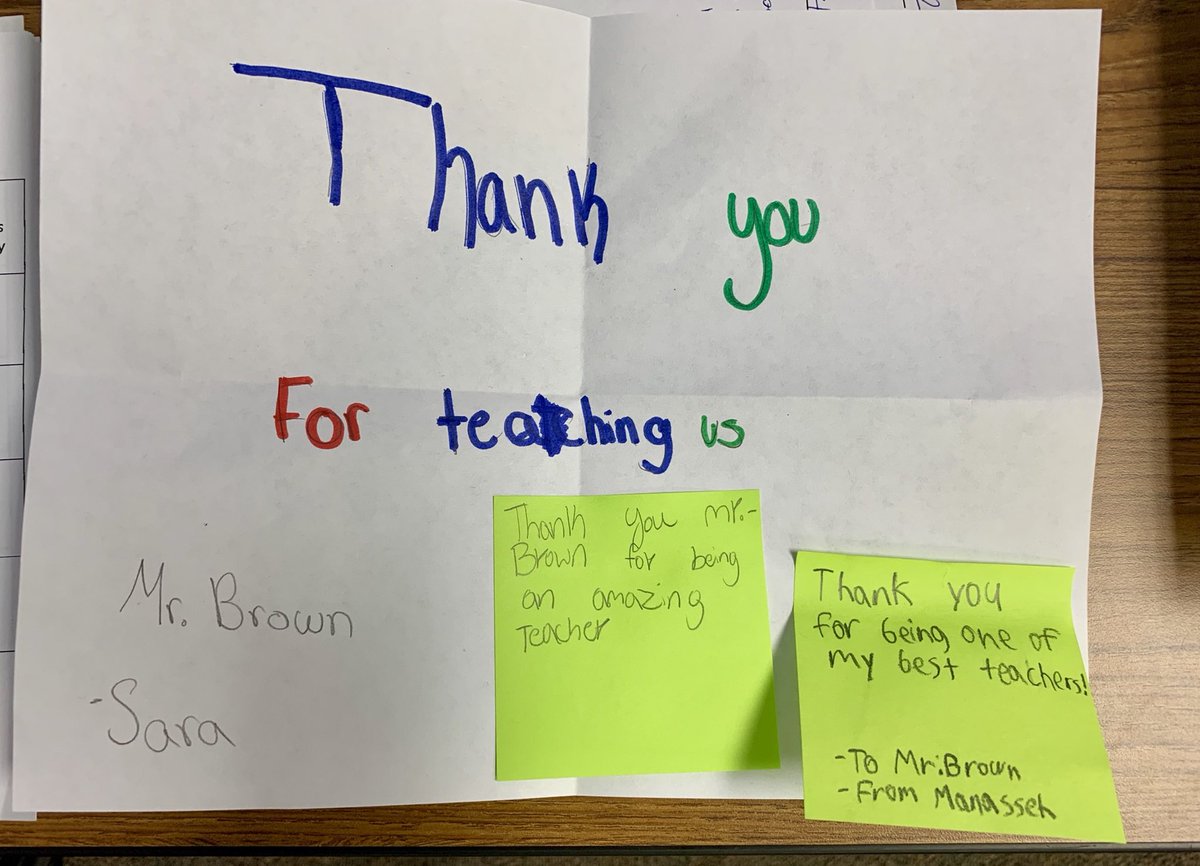 Thank you
For teaching us
Mr. Brown
-Sara
Thank you mr.-
Brown for being
an amazing
Teacher
Thank you
for being one of
my best teachers!
-To Mr. Brown
-From Manasseh